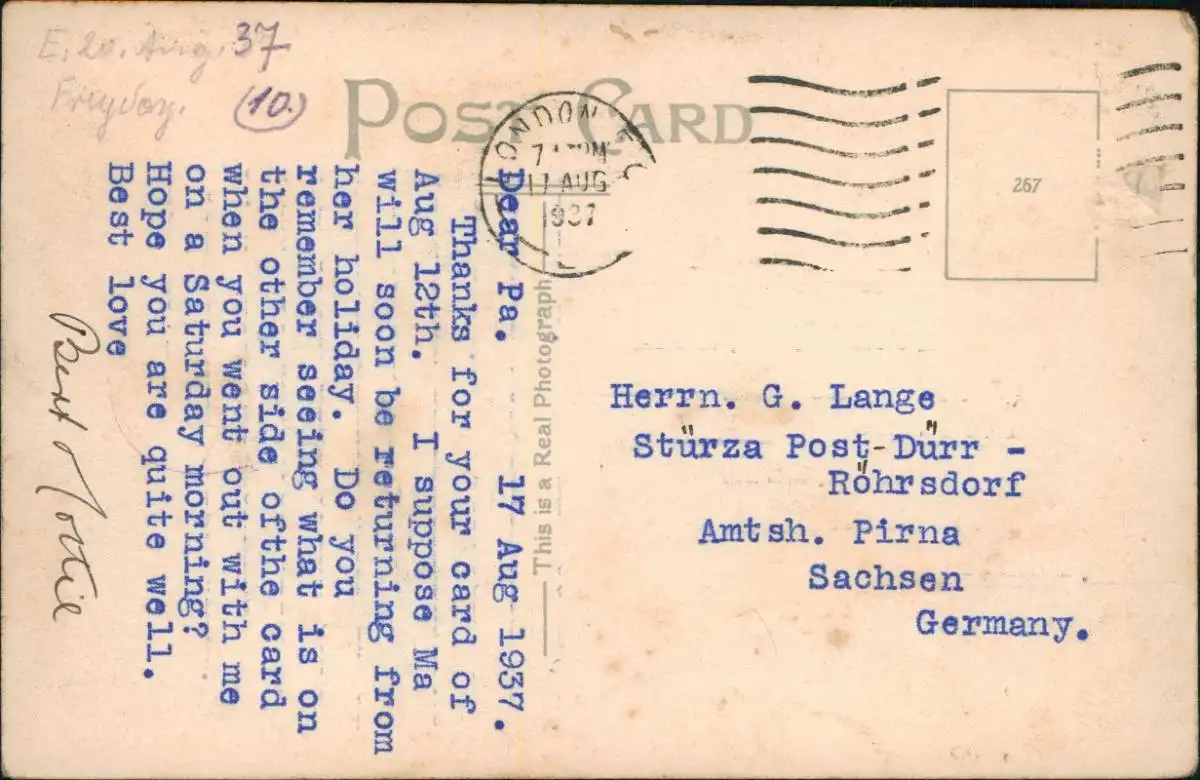 E. 20. Aug. 37
Freyday. (10.)
POST CARD
LONDON
17 AUG
1937
267
This is a Real Photograph
Dear Pa. 17 Aug 1937.
Thanks for your card of
Aug 12th. I suppose Ma
will soon be returning from
her holiday. Do you
remember seeing what is on
the other side ofthe card
when you went out with me
on a Saturday morning?
Hope you are quite well.
Best love
Herrn. G. Lange
Stürza Post-Dürr -
Röhrsdorf
Amtsh. Pirna
Sachsen
Germany.